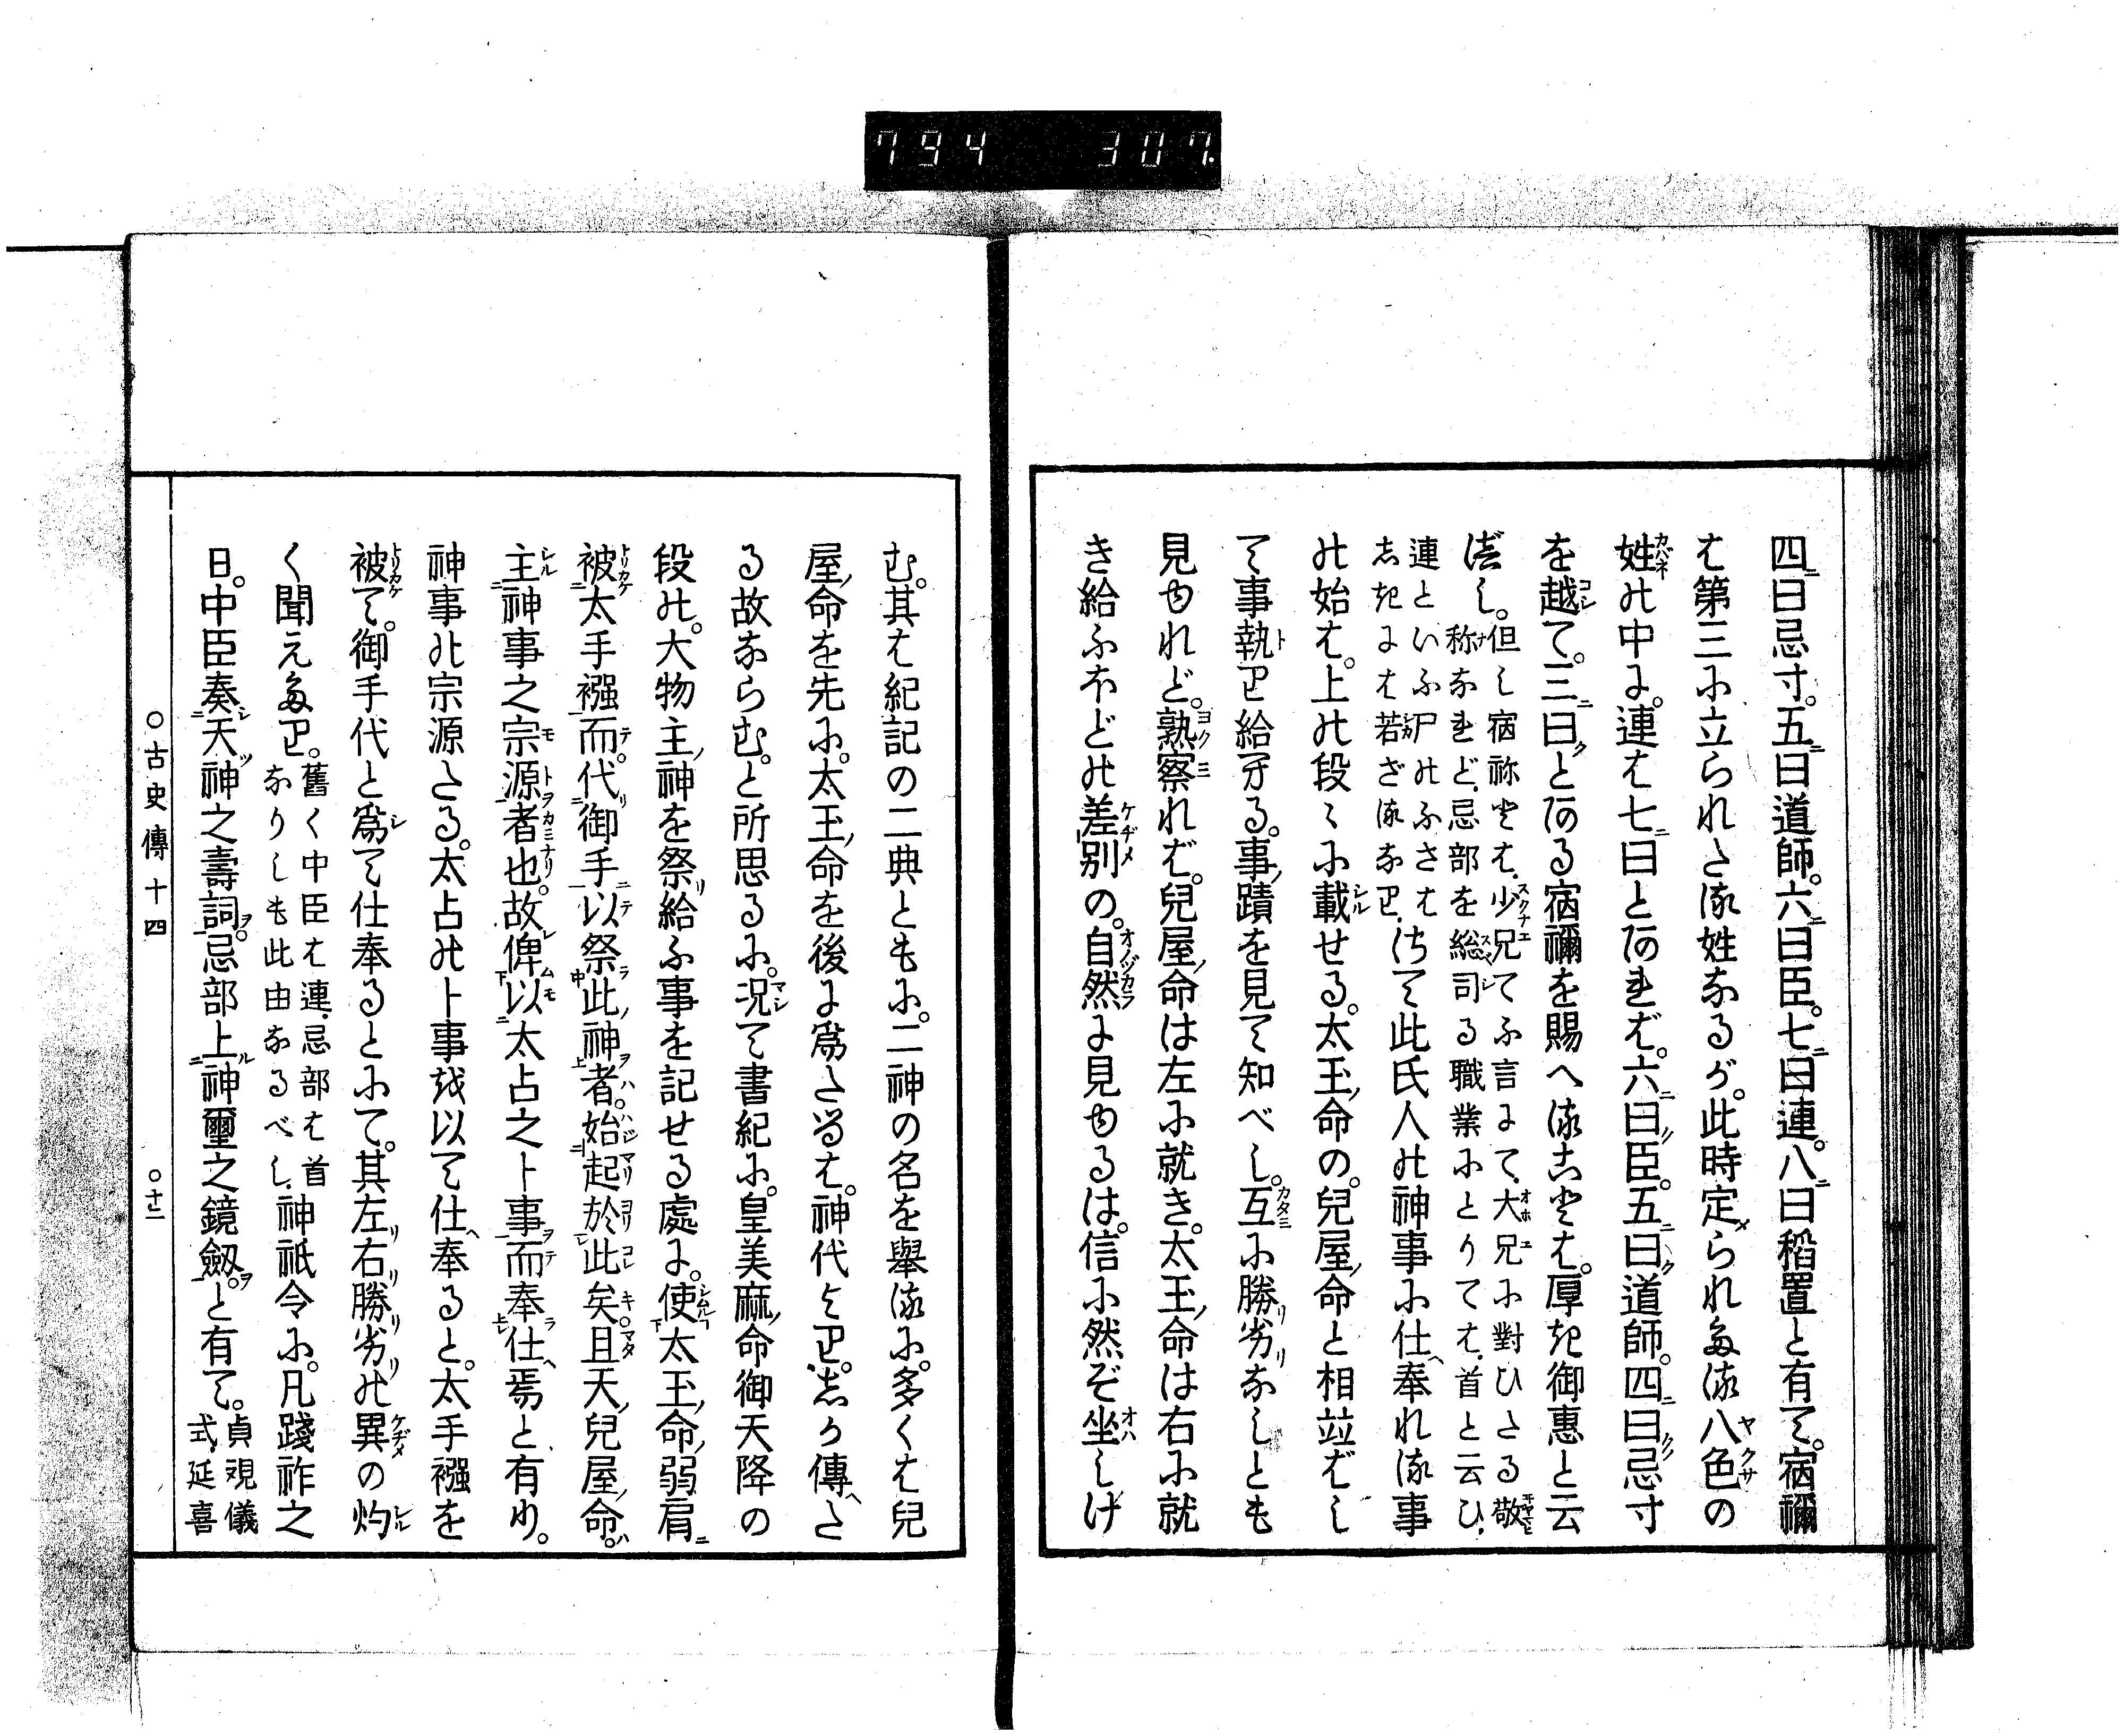 794 307.
四曰忌寸。五曰道師。六曰臣。七曰連。八曰稻置と有て。宿禰
は第三に立られたる姓なるが。此時定られたる八色の
姓の中に。連は七曰とあれば。六曰臣。五曰道師。四曰忌寸
を越て。三曰とある宿禰を賜へることは。厚き御惠と云
べし。但し宿祢とは、少兄てふ言にて、大兄に對ひたる敬
称なれど、忌部を総司る職業にとりては、首と云ひ、
連といふ尸のふさは
しきには若ざるなり、さて此氏人の神事に仕奉れる事
の始は。上の段〻に載せる。太玉命の。兒屋命と相並ばし
て事執り給へる。事蹟を見て知べし。互に勝劣なしとも
見ゆれど。熟察れば。兒屋命は左に就き。太玉命は右に就
き給ふほどの差別の。自然に見ゆるは。信に然ぞ坐しけ
む。其は紀記の二典ともに。二神の名を擧るに。多くは兒
屋命を先に。太玉命を後に爲たるは。神代より。しか傳へた
る故ならむ。と所思るに。况て書紀に。皇美麻命御天降の
段の。大物主神を祭給ふ事を記せる處に。使太玉命弱肩
被太手襁而。代御手以祭此神者。始起於此矣。且天兒屋命。
主神事之宗源者也。故俾以太占之卜事而奉仕焉と有り。
神事の宗源たる。太占の卜事を以て仕奉ると。太手襁を
被て。御手代と爲て仕奉るとにて。其左右勝劣の異の灼
く聞えたり。舊く中臣は連、忌部は首
なりしも此由なるべし、神祇令に。凡踐祚之
日。中臣奏天神之壽詞。忌部上神璽之鏡劔。と有て。貞観儀
式、延喜
○古史傳十四 ○十二